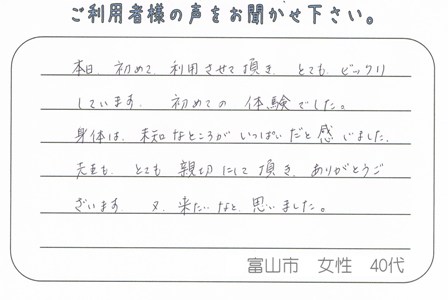 ご利用者様の声をお聞かせ下さい。
本日、初めて、利用させて頂き、とても、ビックリ
しています、初めての体験でした。
身体は、未知なところがいっぱいだと感じました、
先生も、とても親切にして頂き、ありがとうご
ざいます 又、来たいなと、思いました。
富山市 女性 40代